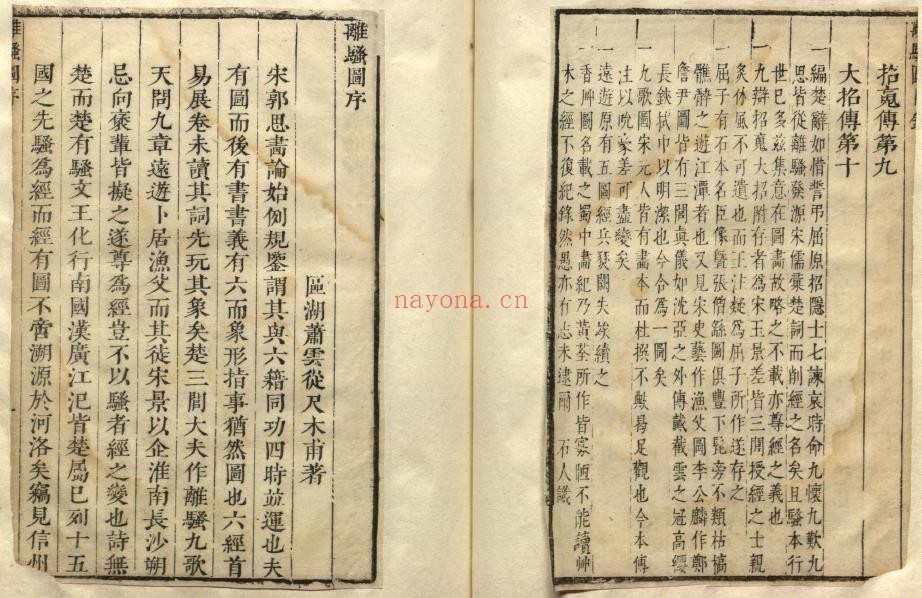 招䰟傳第九
大招傳第十
一編楚辭如惜誓弔屈原招隱士七諫哀時命九懷九歎九
思皆從離騷發源宋儒彙楚詞而削經之名矣且騷本行
世已多茲集意在圖畫故略之不載亦尊經之義也
一九辯招䰟大招附存者爲宋玉景差皆三閭授經之士親
炙休風不可遺也而王注疑爲屈子所作遂存之
一屈子有石本名臣像暨張僧繇圖俱豐下髭旁不類枯槁
憔悴之遊江潭者也又見宋史藝作漁父圖李公麟作鄭
詹尹圖皆有三閭眞儀如沈亞之外傳戴截雲之冠高纓
長鋏拭巾以明潔也今合爲一圖矣
一九歌圖宋元人皆有畫本而杜撰不敷曷足觀也今本傳
注以吮豪差可盡變矣
一遠遊原有五圖經兵燹闕失埃續之
一香艸圖名載之蜀中畫紀乃黃荃所作皆寡陋不能讀艸
木之經不復紀錄然愚亦有志未逮爾　石人識
離騷圖序
區湖蕭雲從尺木甫著
宋郭思畫論始例規鑒謂其與六籍同功四時並運也夫
有圖而後有書書義有六而象形指事猶然圖也六經首
易展卷未讀其詞先玩其象矣楚三閭大夫作離騷九歌
天問九章遠遊卜居漁父而其徒宋景以企淮南長沙朔
忌向褒輩皆擬之遂尊爲經豈不以騷者經之變也詩無
楚而楚有騷文王化行南國漢廣江汜皆楚屬已列十五
國之先騷爲經而經有圖不啻溯源於河洛矣竊見信州
離騷圖序
nayona.cn